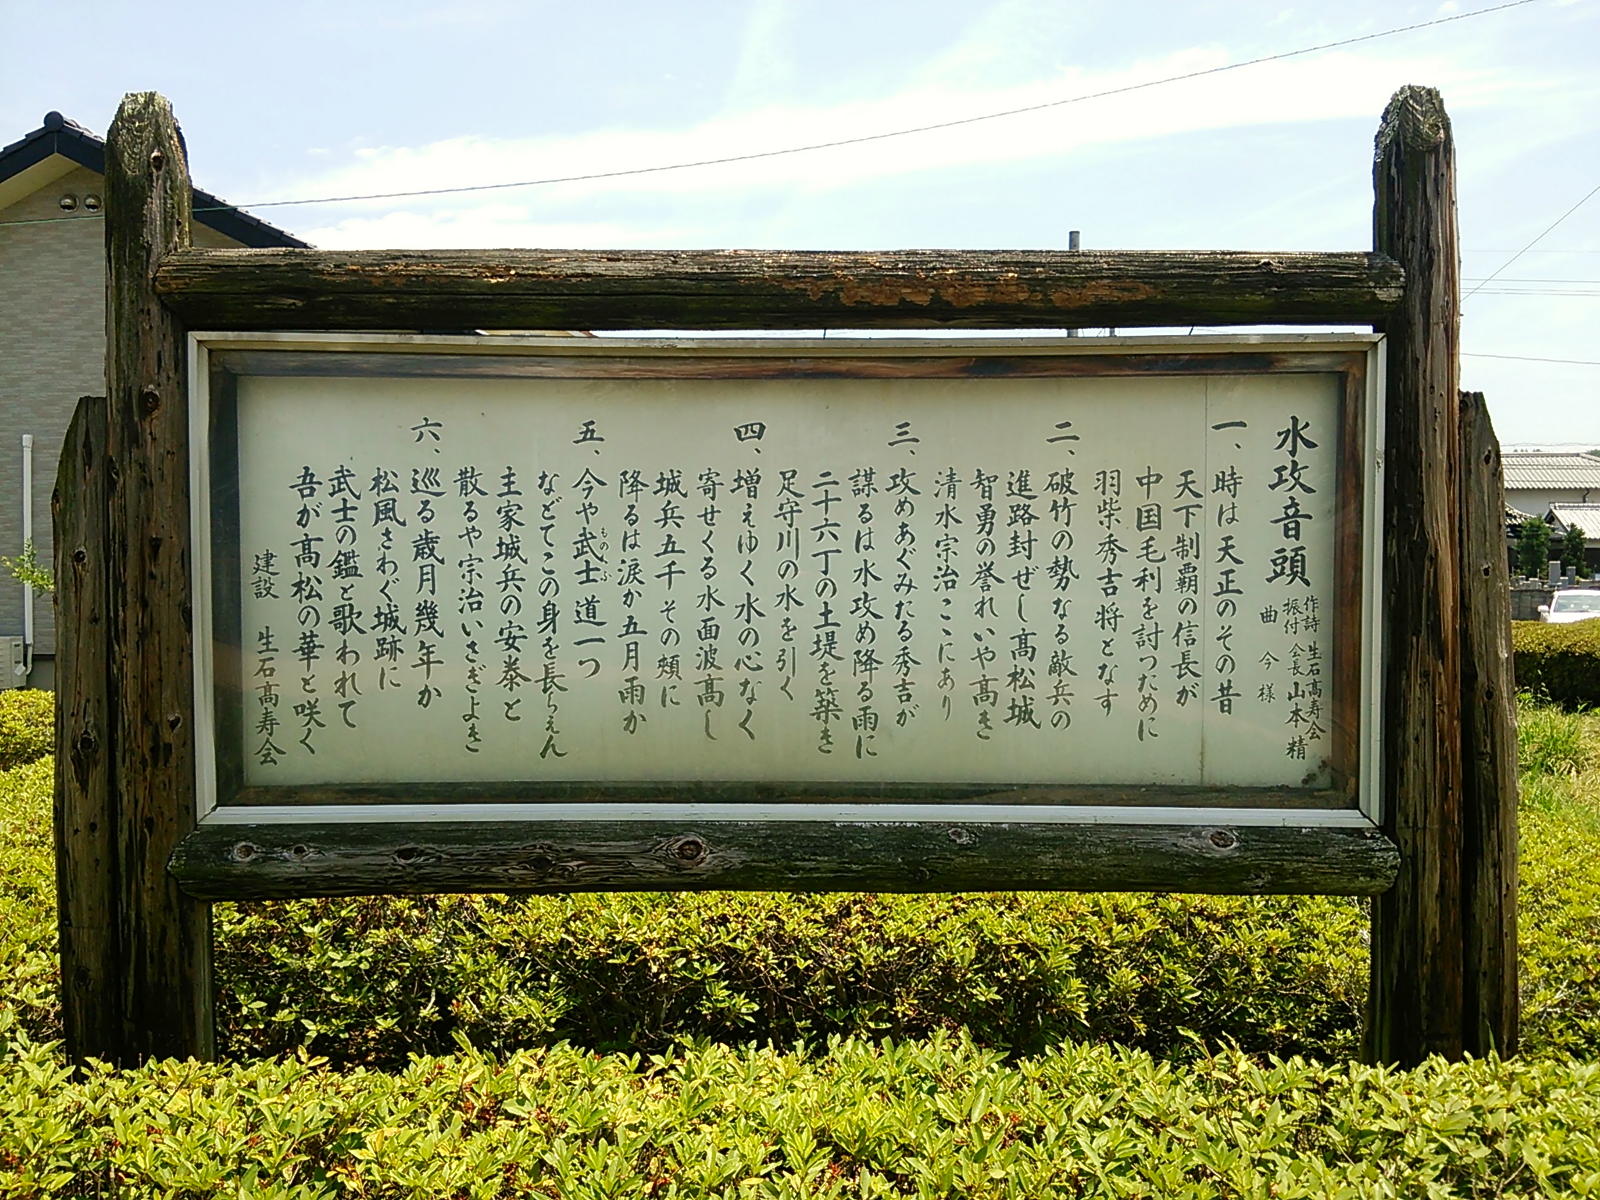 水攻音頭
作詩 振付 生石高寿会 会長 山本 精
曲 今様
一、時は天正のその昔
天下制覇の信長が
中国毛利を討つために
羽柴秀吉将となす
二、破竹の勢なる敵兵の
進路封ぜし髙松城
智勇の誉れいや髙き
清水宗治こゝにあり
三、攻めあぐみたる秀吉が
謀るは水攻め降る雨に
二十六丁の土堤を築き
足守川の水を引く
四、増えゆく水の心なく
寄せくる水面波髙し
城兵五千その頬に
降るは涙か五月雨か
五、今や武士道一つ
もののふ
などてこの身を長らえん
主家城兵の安泰と
散るや宗治いさぎよき
六、巡る歳月幾年か
松風さわぐ城跡に
武士の鑑と歌われて
吾が髙松の華と咲く
建設 生石髙寿会